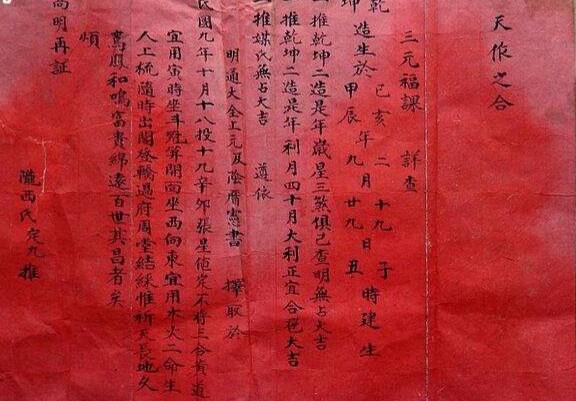 天作之合
三元福課 詳查
乾 造生於 己亥 年 二 月 十九 日 子 時建生
坤 造生於 甲辰 年 九 月 廿九 日 丑 時建生
一推乾坤二造是年歲星三煞俱已查明無占大吉
一推乾坤二造是年利月四十月大利正宜合卺大吉
一推媒氏無占大吉 遵依
明通大全上元及陰曆憲書 擇取於
民國九年十月十八投十九辛卯張星値定不將三合黃道
宜用寅時坐斗冠笄開面坐西向東宜用水火二命生
人上梳隨時出閣登輪過府周堂結綵惟祈天長地久
鸞鳳和鳴富貴綿遠百世其昌者矣
煩
高明再証
隴西氏定九推